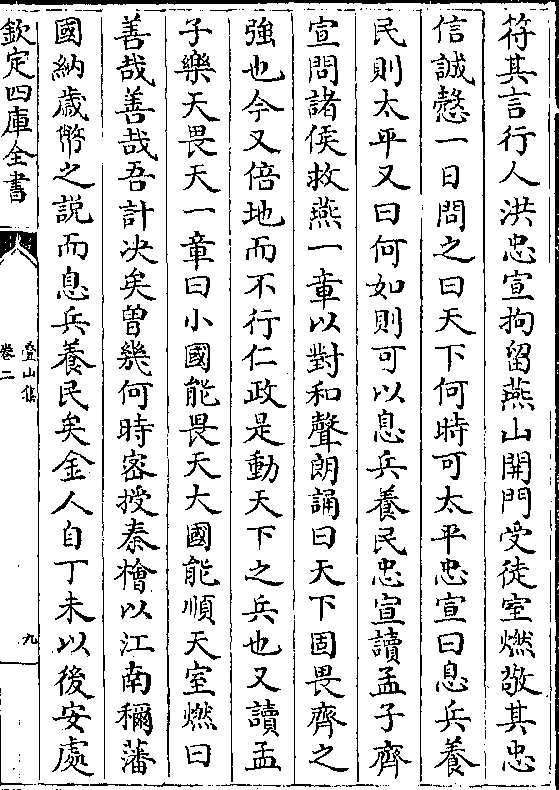 符其言行人洪忠宣拘留燕山開門受徒室燃敬其忠
信誠慤一日問之曰天下何時可太平忠宣曰息兵養
民則太平又曰何如則可以息兵養民忠宣讀孟子齊
宣問諸侯救燕一章以對和聲朗誦曰天下固畏齊之
強也今又倍地而不行仁政是動天下之兵也又讀孟
子樂天畏天一章曰小國能畏天大國能順天室燃曰
善哉善哉吾計决矣曽㡬何時宻授秦檜以江南稱藩
國納歳幣之說而息兵養民矣金人自丁未以後安處
欽定四庫全書
疊山集
卷二
九